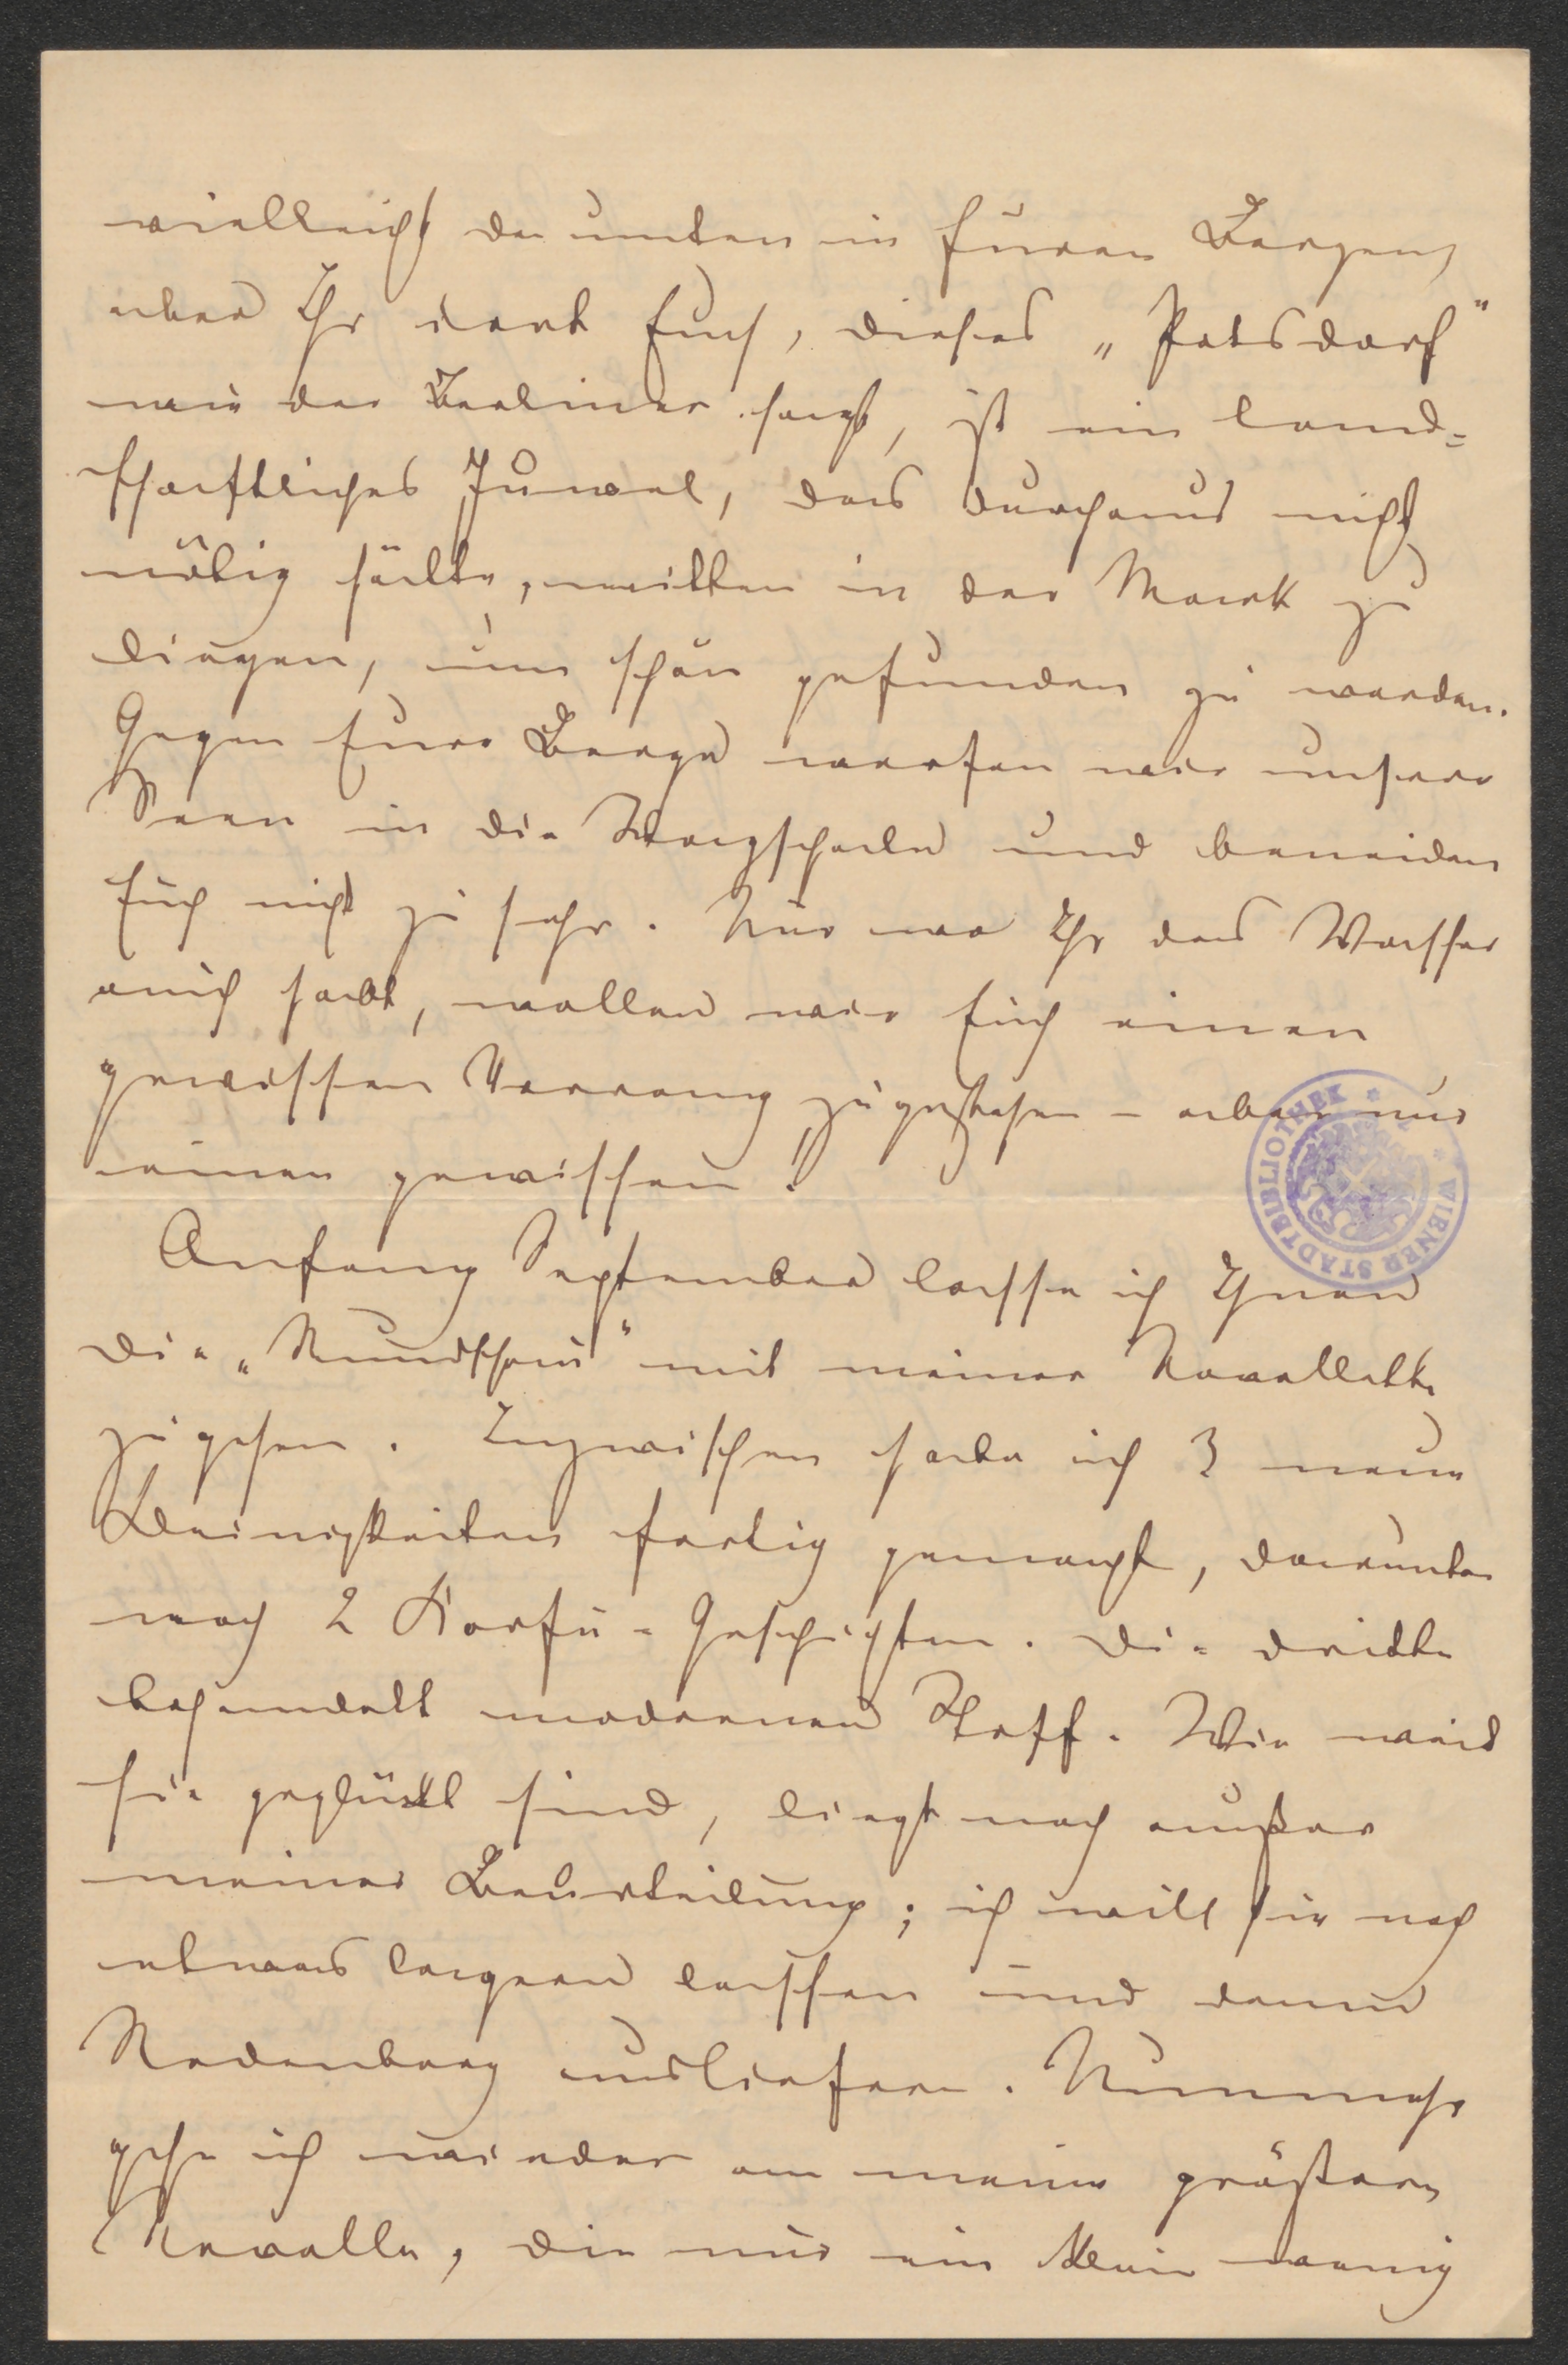 vielleicht da unten in Euren Bergen,
aber Ihr dort Euch, dieses „Potsdorf"
wie der Berliner sagt, ist ein land=
schaftliches Juwel, das durchaus nicht
nötig hätte, mitten in der Mark zu
liegen, um schön gefunden zu werden.
Gegen Eure Berge werfen wir unsere
Seen in die Wagschale und beneiden
Euch nicht zu sehr. Nur wo Ihr das Wasser
auch habt, wollen wir Euch einen
gewissen Vorrang zugestehen – aber nur
einen gewissen!
Anfang September lasse ich Ihnen
die „Rundschau" mit meiner Novellette
zugehen. Inzwischen habe ich 3 neue
Kleinigkeiten fertig gemacht, darunter
noch 2 Korfu-Geschichten. Die dritte
behandelt modernen Stoff. Wie weit
sie geglückt sind, liegt noch außer
meiner Beurteilung; ich will sie noch
etwas lagern lassen und dann
Rodenberg ausliefern. Nunmehr
gehe ich wieder an meine größere
Novelle, die nur ein klein wenig
WIENER STADTBIBLIOTHEK